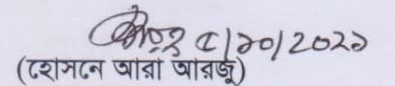 ৫/১০/২০২১
(হোসনে আরা আরজু)